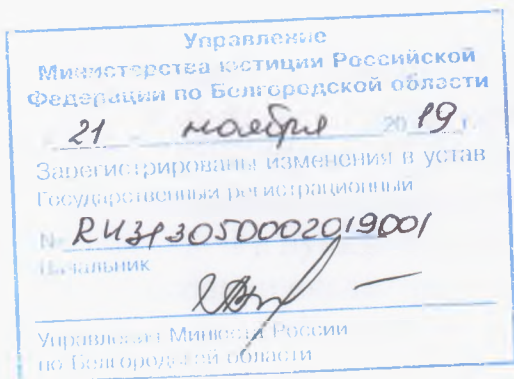 Управление
Министерства юстиции Российской
Федерации по Белгородской области
21 ноября 2019 г.
Зарегистрированы изменения в устав
Государственный регистрационный
№ RU313050002019001
Начальник
Управления Минюста России
по Белгородской области